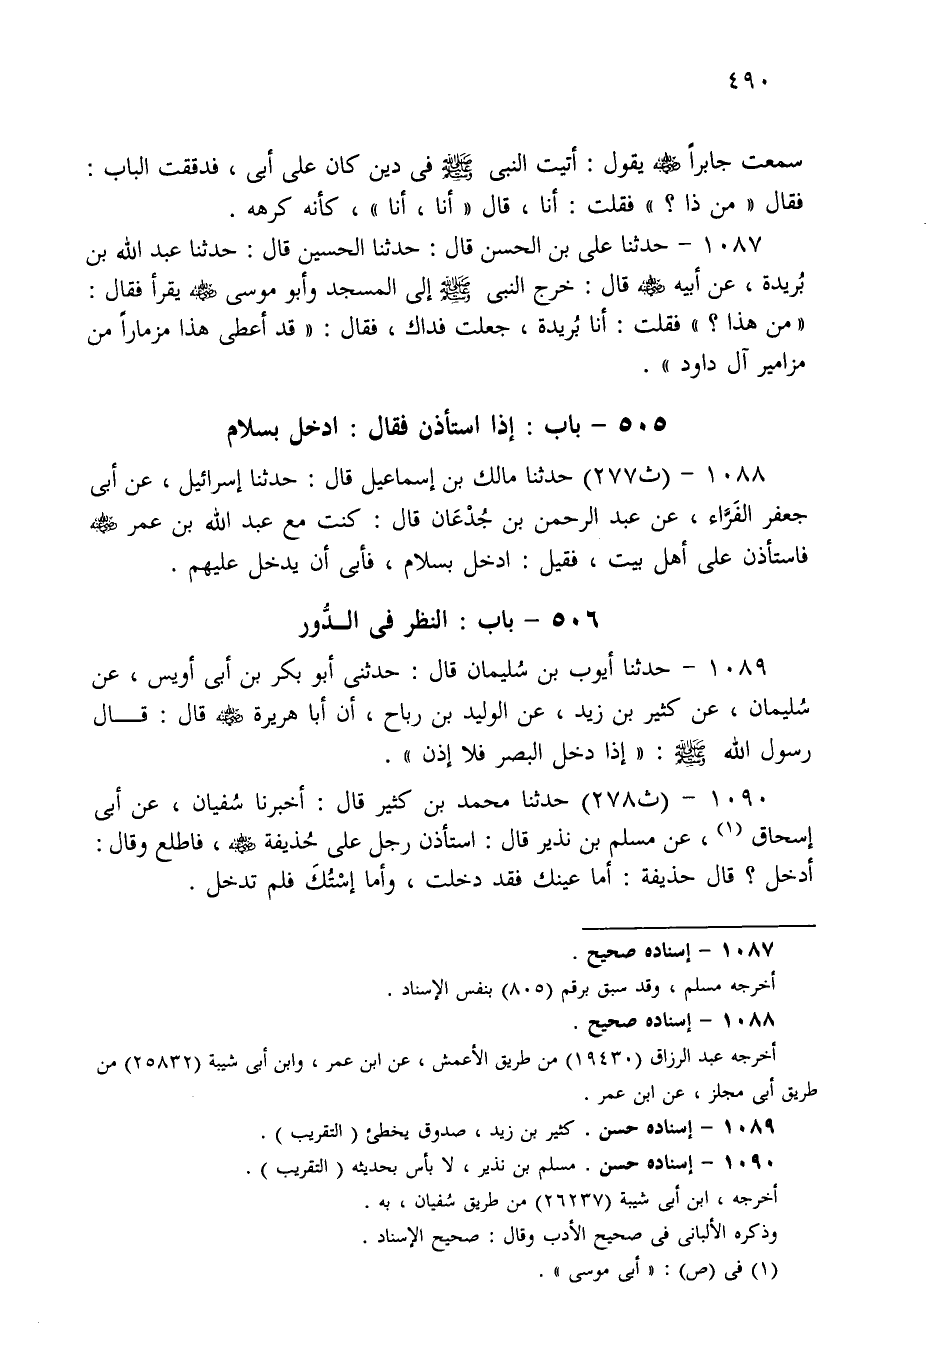 ٤٩٠
سمعت جابراً ﷺ يقول : أتيت النبى ﷺ فى دين كان على أبى ، فدققت الباب :
فقال « من ذا ؟ » فقلت : أنا ، قال « أنا ، أنا » ، كأنه كرهه .
١٠٨٧ – حدثنا على بن الحسن قال : حدثنا الحسين قال : حدثنا عبد الله بن
بُريدة ، عن أبيه قال : خرج النبى ﷺ إلى المسجد وأبو موسى يقرأ فقال :
« من هذا ؟ » فقلت : أنا بُريدة ، جعلت فداك ، فقال : « قد أعطى هذا مزماراً من
مزامير آل داود » .
٥٠٥ – باب : إذا استأذن فقال : ادخل بسلام
١٠٨٨ – (ث٢٧٧) حدثنا مالك بن إسماعيل قال : حدثنا إسرائيل ، عن أبى
جعفر الفَرَّاء ، عن عبد الرحمن بن جُدْعَان قال : كنت مع عبد الله بن عمر
فاستأذن على أهل بيت ، فقيل : ادخل بسلام ، فأبى أن يدخل عليهم .
٥٠٦ – باب : النظر فى الـدُّور
١٠٨٩ – حدثنا أيوب بن سُليمان قال : حدثنى أبو بكر بن أبى أويس ، عن
سُليمان ، عن كثير بن زيد ، عن الوليد بن رباح ، أن أبا هريرة قال : قـــال
رسول الله ﷺ : « إذا دخل البصر فلا إذن » .
١٠٩٠ – (ث٢٧٨) حدثنا محمد بن كثير قال : أخبرنا سُفيان ، عن أبى
إسحاق (١) ، عن مسلم بن نذير قال : استأذن رجل على حُذيفة ، فاطلع وقال :
أدخل ؟ قال حذيفة : أما عينك فقد دخلت ، وأما إسْتُكَ فلم تدخل .
١٠٨٧ – إسناده صحيح .
أخرجه مسلم ، وقد سبق برقم (٨٠٥) بنفس الإسناد .
١٠٨٨ – إسناده صحيح .
أخرجه عبد الرزاق (١٩٤٣٠) من طريق الأعمش ، عن ابن عمر ، وابن أبى شيبة (٢٥٨٣٢) من
طريق أبى مجلز ، عن ابن عمر .
١٠٨٩ – إسناده حسن . كثير بن زيد ، صدوق يخطئ ( التقريب ) .
١٠٩٠ – إسناده حسن . مسلم بن نذير ، لا بأس بحديثه ( التقريب ) .
أخرجه ، ابن أبى شيبة (٢٦٢٣٧) من طريق سُفيان ، به .
وذكره الألبانى فى صحيح الأدب وقال : صحيح الإسناد .
(١) فى (ص) : « أبى موسى » .